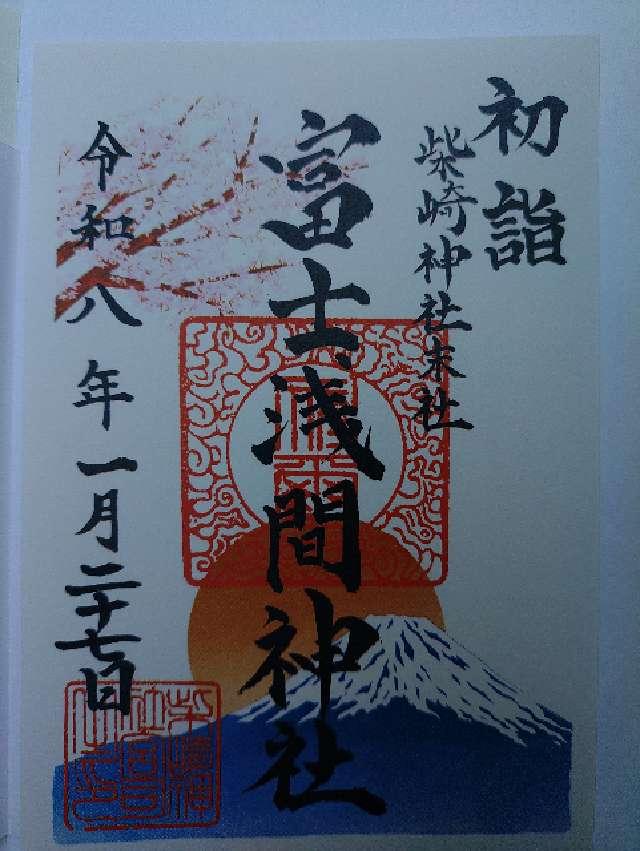 初詣
柴崎神社末社
富士浅間神社
令和八年一月二十七日